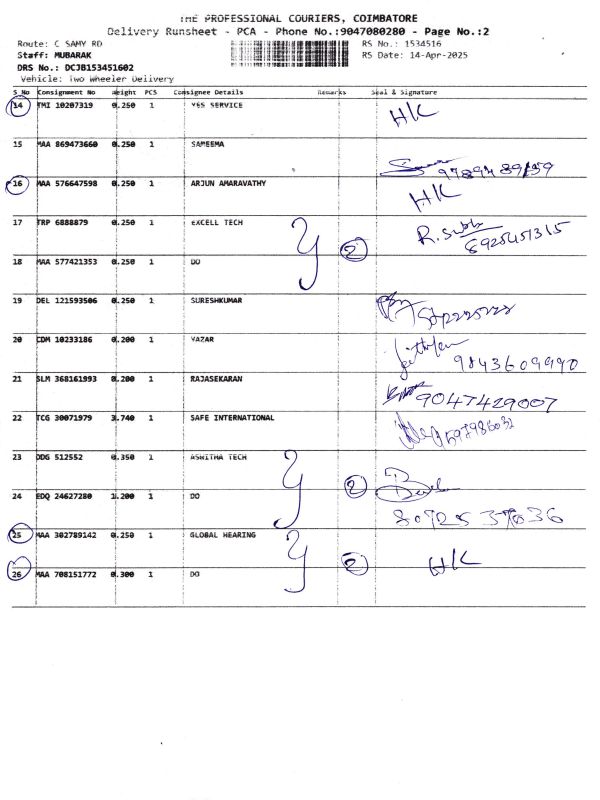 THE PROFESSIONAL COURIERS, COIMBATORE
Delivery Runsheet - PCA - Phone No.:9047080280 - Page No.:2
Route: C SAMY RD
RS No.: 1534516
Staff: MUBARAK
RS Date: 14-Apr-2025
DRS No.: DCJB153451602
Vehicle: Two Wheeler Delivery
S No Consignment No Weight PCS Consignee Details Remarks Seal & Signature
14 TMI 10207319 0.250 1 YES SERVICE HK
15 MAA 869473660 0.250 1 SAMEEMA
16 MAA 576647598 0.250 1 ARJUN AMARAVATHY HK
17 TRP 6888879 0.250 1 EXCELL TECH 2 R.Subbu
6925451315
18 MAA 577421353 0.250 1 DO
19 DEL 121593506 0.250 1 SURESHKUMAR
20 CDM 10233186 0.200 1 YAZAR
9843609990
21 SLM 368161993 0.200 1 RAJASEKARAN 9047429007
22 TCG 30071979 3.740 1 SAFE INTERNATIONAL
23 DDG 512552 0.350 1 ASWITHA TECH 2
24 EDQ 24627280 1.200 1 DO
25 MAA 302789142 0.250 1 GLOBAL HEARING 2 HK
26 MAA 708151772 0.300 1 DO